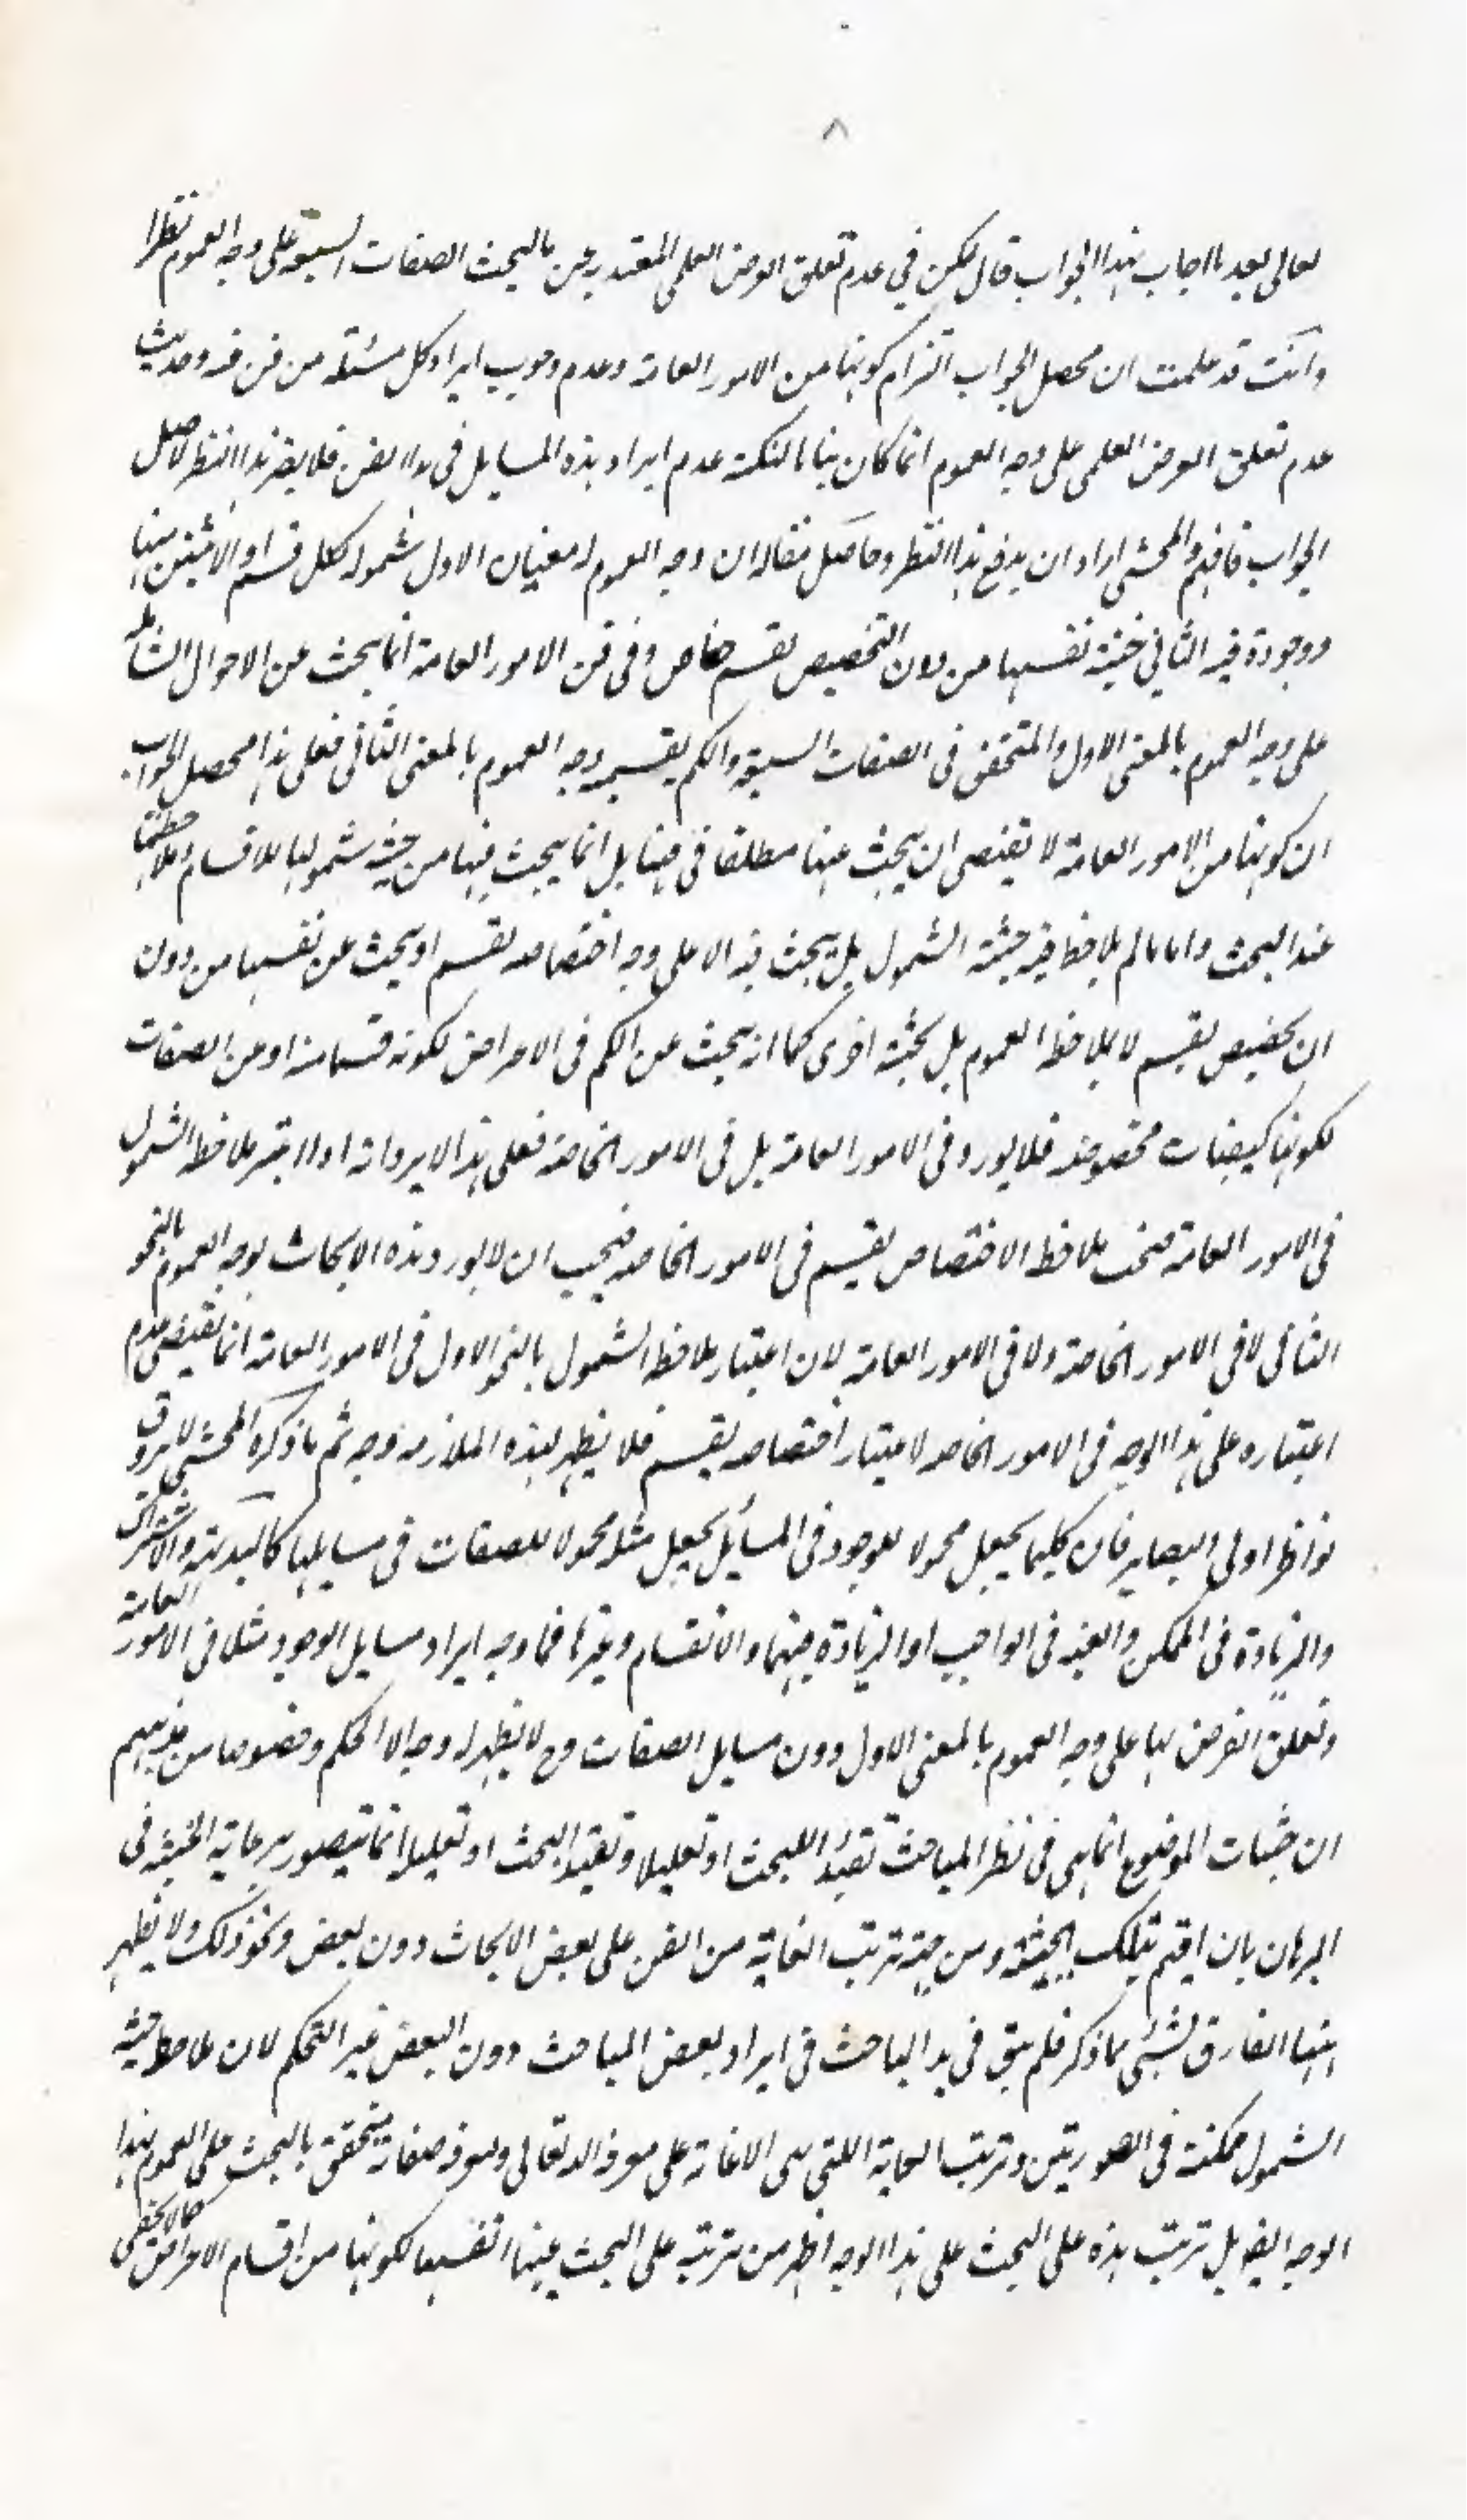 ٨
تعالى بعد ما اجاب بهذا الجواب قال لكن في عدم تعلق الغرض العلمى المعتد به عن بالبحث الصفات السبعة على وجه العموم نظرا
وانت قد علمت ان محصل الجواب التزام كونها من الامور العامة وعدم وجوب ايراد كل مسئلة من فن فيه وحديث
عدم تعلق الغرض العلمى على وجه العموم انما كان بيانا لنكتة عدم ايراد هذه المسايل فى هذا الفن فلا يضر هذا النظر لاصل
الجواب فافهم والمحشى اراد ان يدفع هذا النظر وحاصل مقاله ان وجه العموم له معنيان الاول شموله لكل قسم او الاثنين منها
ووجوده فيه الثاني حيثية نفسها من دون التخصيص بقسم خاص وفى فن الامور العامة انما يبحث عن الاحوال الشاملة
على وجه العموم بالمعنى الاول والمتحقق فى الصفات السبعة والكم بقسميه وجه العموم بالمعنى الثانى فعلى هذا محصل الجواب
ان كونها من الامور العامة لا يقتضى ان يبحث عنها مطلقا فى فنها بل انما يبحث فيها من حيث شمولها للاقسام وملاحظتها
عند البحث واما ما لم يلاحظ فيه حيثية الشمول بل يبحث فيه الا على وجه اختصاصه بقسم او يبحث عن نفسها من دون
ان يخصص بقسم لا بملاحظة العموم بل بحيثية اخرى كما انه يبحث عن الكم فى الاعراض لكونه قسما منه او من الصفات
لكونها كيفيات مخصوصة فلا يورد فى الامور العامة بل فى الامور الخاصة فعلى هذا لا يرد انه اذا اعتبر ملاحظة الشمول
فى الامور العامة فتجب ملاحظة الاختصاص بقسم فى الامور الخاصة فيجب ان لا يورد هذه الابحاث بوجه العموم بالنحو
الثانى لا فى الامور الخاصة ولا فى الامور العامة لان اعتبار ملاحظة الشمول بالنحو الاول فى الامور العامة انما يقتضى عدم
اعتباره على هذا الوجه فى الامور الخاصة لا اعتبار اختصاصه بقسم فلا يظهر لهذه الملازمة وجه ثم ما ذكره المحشى لا يروق
نواظر اولى البصاير فان كلما يجعل محمولا للوجود فى المسائل يجعل مثله محمولا للصفات فى مسايلها كالبديهية والاشتراك
والزيادة فى الممكن والعينية فى الواجب او الزيادة فيهما والانقسام وغيرها فما وجه ايراد مسايل الوجود مثلا فى الامور العامة
وتعلق الغرض بها على وجه العموم بالمعنى الاول دون مسايل الصفات وح لا يظهر له وجه الا التحكم وخصوصا من مذهبهم
ان حيثيات الموضوع انما هى فى نظر المباحث تقييدا للبحث او تعليلا وتقييد البحث او تعليله انما يتصور برعاية الحيثية فى
البرهان بان اقيم بتلك الحيثية ومن جهة ترتب الغاية من الفن على بعض الابحاث دون بعض ونحو ذلك ولا يظهر
ههنا الفارق لشيئ مما ذكر فلم يبق فى يد الباحث فى ايراد بعض المباحث دون البعض غير التحكم لان ملاحظة حيثية
الشمول ممكنة فى الصورتين وترتب الغاية اللتى هى الاعانة على معرفة الله تعالى ومعرفة صفاته يتحقق بالبحث على العموم بهذا
الوجه ايضا بل ترتب هذه على البحث على هذا الوجه اظهر من ترتبه على البحث عنها انفسها لكونها من اقسام الاعراض كما لا يخفى